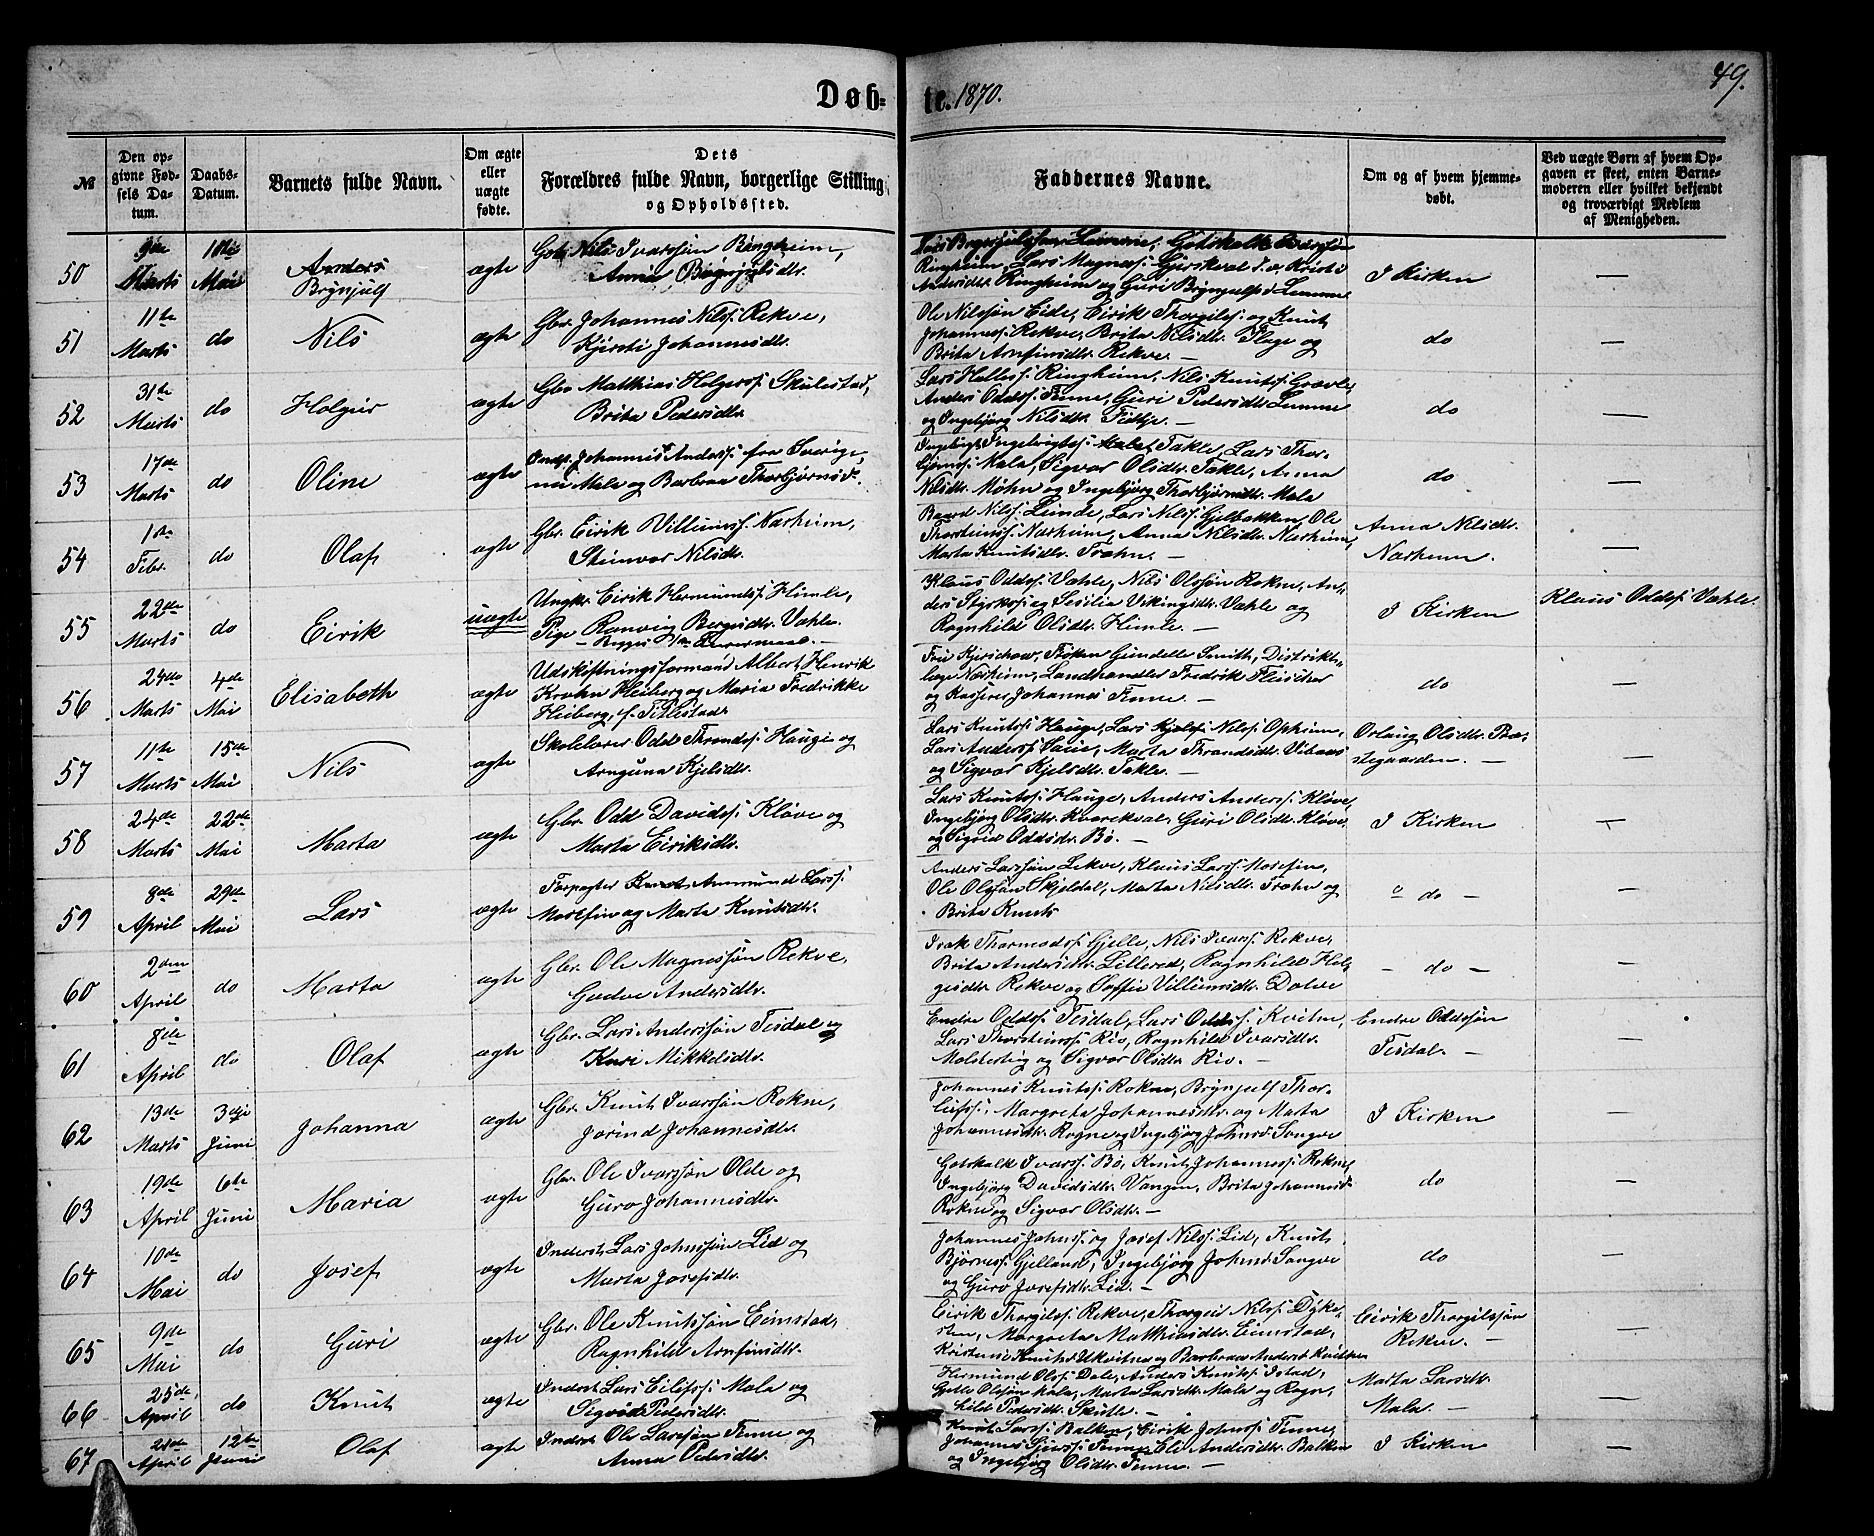 49.
Døb-
te. 1870.
№
Den op-
givne Fød-
sels Da-
tum.
Daabs-
Datum.
Barnets fulde Navn.
Om ægte
eller
uægte
fødte.
Dets
Forældres fulde Navn, borgerlige Stilling
og Opholdssted.
Faddernes Navne.
Om og af hvem hjemme-
døbt.
Ved uægte Børn af hvem Op-
gaven er skeet, enten Barne-
moderen eller hvilket bekjendt
og troværdigt Medlem
af Menigheden.
50
9de
Marts
Mai
Anders
Brynjulf
ægte
Nils Ivarssøn Ringheim,
Anna Brynjulsdtr.
Ringheim, Lars Magness. Gjerskval
Ringheim og Guri
I Kirken
—
51
11te
Marts
do
Nils
ægte
Gbr. Johannes Nilss. Rekve,
Kjersti Johannesdtr.
Ole Nilssøn Eide, Eirik Thorgilss. og Knut
Johanness. Rekve, Brita Nilsdtr. Flage og
Brita Arnfinsdtr. Rekve. —
do
—
52
31te
Marts
do
Holger
ægte
Gbr. Matthias Holgerss. Skulestad,
Brita Pedersdtr.
Lars Helless. Ringheim, Nils Knutss. Grovle,
Anders Oddss. Finne, Guri Pedersdtr. Lemme
og Ingebjørg Nilsdtr. —
do
—
53
17de
Marts
do
Oline
ægte
Johannes Anderss. fra Sverige,
Male og Barbraa Thorbjørnsd.
Takle, Lars Thor-
bjørnss. Male, Sigvor Olsdtr. Takle, Anna
Nilsdtr. Møhn og Ingebjørg Thorbjørnsdtr. Male
do
—
54
1ste
Febr.
do
Olaf
ægte
Gbr. Eirik Villumss. Narheim,
Steinvor Nilsdtr.
Baard Nilss. Lunde, Lars Nilss. Gjelbakken, Ole
Thorsteinss. Narheim, Anna Nilsdtr. Narheim,
Marta Knutsdtr. Træhn. —
Anna Nilsdtr.
Narheim.
—
55
22de
Marts
do
Eirik
uægte
Ungkr. Eirik Hermundss. Himle,
Pige Ranveig Bergesdtr. Væhle.
Klaus Oddss. Væhle, Nils Olssøn Rokne, An-
ders Styrkss. og Sesilia Vikingsdtr. Væhle og
Ragnhild Olsdtr. Himle. —
I Kirken
Klaus Oddss. Væhle.
56
24de
Marts
4de
Mai
Elisabeth
ægte
Udskiftningsformand Albert Henrik
Krohn Heiberg og Maria Fredrikke
Heiberg, f.
Fru Kjerschow, Frøken Gundelle Smith, Distrikts-
læge Narheim, Landhandler Fredrik Fleischer
og Kasserer Johannes Finne. —
do
—
57
11te
Marts
15de
Mai
Nils
ægte
Skolelærer Odd Throndss. Hauge og
Arnguna Kjelsdtr.
Lars Knutss. Hauge, Lars Kjelss. Nilss. Opheim,
Lars Anderss. Marta Throndsdtr.
og Sigvor Kjelsdtr. Takle. —
Orlaug Olsdtr. Præ-
stegaarden. —
—
58
24de
Marts
22de
Mai
Marta
ægte
Gbr. Odd Davidss. Kløve og
Marta Eiriksdtr.
Lars Knutss. Hauge, Anders Anderss. Kløve,
Ingebjørg Olsdtr. Kvarekval, Guri Olsdtr. Kløve
og Sigrid Oddsdtr. Bø. —
I Kirken
—
59
8de
April
29de
Mai
Lars
ægte
Forpagter Knut Ammund Larss.
Mosefin og Marta Knutsdtr.
Anders Larssøn Lekve, Klaus Larss. Mosefin,
Ole Olssøn Skjeldal, Marta Nilsdtr. Træhn og
Brita Knuts
" do —
—
60
2den
April
do
Marta
ægte
Gbr. Ole Magnessøn Rekve,
Gudve Andersdtr.
Isak Thormodss. Gjelle, Nils Ivarss. Rekve,
Brita Andersdtr. Lillered, Ragnhild Hel-
gesdtr. Rekve og Villumsdtr. Dolve
— do —
—
61
8de
April
do
Olaf
ægte
Gbr. Lars Anderssøn Tesdal og
Kari Mikkelsdtr.
Endre Oddss. Tesdal, Lars Oddss. Kvitne,
Lars Thorsteinss. Rio, Ragnhild Ivarsdtr.
Molsterteig og Sigvor Olsdtr. Rio. —
Endre Oddssøn
Tesdal. —
—
62
13de
Marts
3dje
Juni
Johanna
ægte
Gbr. Knut Ivarssøn Rokne,
Jorind Johannesdtr.
Johannes Knutss. Rokne, Brynjulf Thor-
leifss., Margreta Johannesdtr. og Marta
Johannesdtr. Rogne og Ingebjørg Johnsd. Songve
I Kirken
—
63
19de
April
6te
Juni
Maria
ægte
Gbr. Ole Ivarssøn Olde og
Guro Johannesdtr.
Gotskalk Ivarss. Bø, Knut Johanness. Rokne,
Ingebjørg Davidsdtr. Vangen, Brita Johannesd.
Rokne og Sigvor Olsdtr. —
do
—
64
10de
Mai
do
Josef
ægte
Inderst Lars Johnssøn Lid og
Marta Josefsdtr.
Johannes Johnss. og Josef Nilss. Lid, Knut
Bjørness. Gjelland, Ingebjørg Johnsd. Songve
og Guro Josefsdtr. Lid. —
do
—
65
9de
Mai
do
Guri
ægte
Gbr. Ole Knutssøn Eimstad,
Ragnhild Arnfinsdtr.
Eirik Thorgilss. Rekve, Thorgeid Nilss. Dyke-
sten, Margreta Matthiasdtr. Eimstad,
Kristense Knutsd. Ukvitne og Barbraa Andersd. Kvitne
Eirik Thorgilssøn
Rekve. —
—
66
25de
April
do
Knut
ægte
Inderst Lars Eilifss. Male og
Sigvor Pedersdtr.
Hermund Olss. Dale, Anders Knutss. Istad,
Gjelle Olssøn Male, Marta Larsdtr. Male og Ragn-
hild Pedersdtr. Skutle. —
Marta Larsdtr.
Male. —
—
67
April
12te
Juni
Olaf
ægte
Inderst Ole Larssøn Finne og
Anna Pedersdtr.
Knut Larss. Balken, Eirik Johnss. Finne,
Johannes Finne, Eli Andersdtr. Balken
og Ingebjørg Olsdtr. Finne. —
I Kirken
—